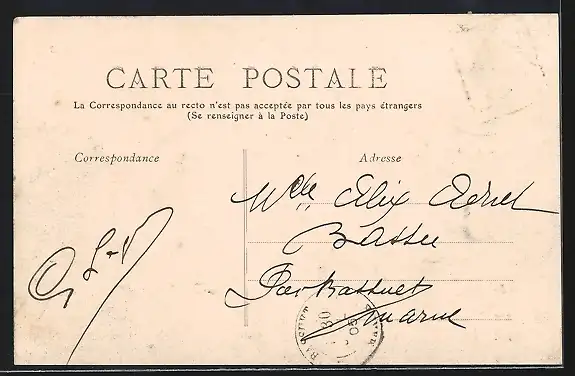 CARTE POSTALE
La Correspondance au recto n'est pas acceptée par tous les pays étrangers
(Se renseigner à la Poste)
Correspondance
Adresse
Mlle Alix
Bassu
Par Bassuet
Marne
30
05